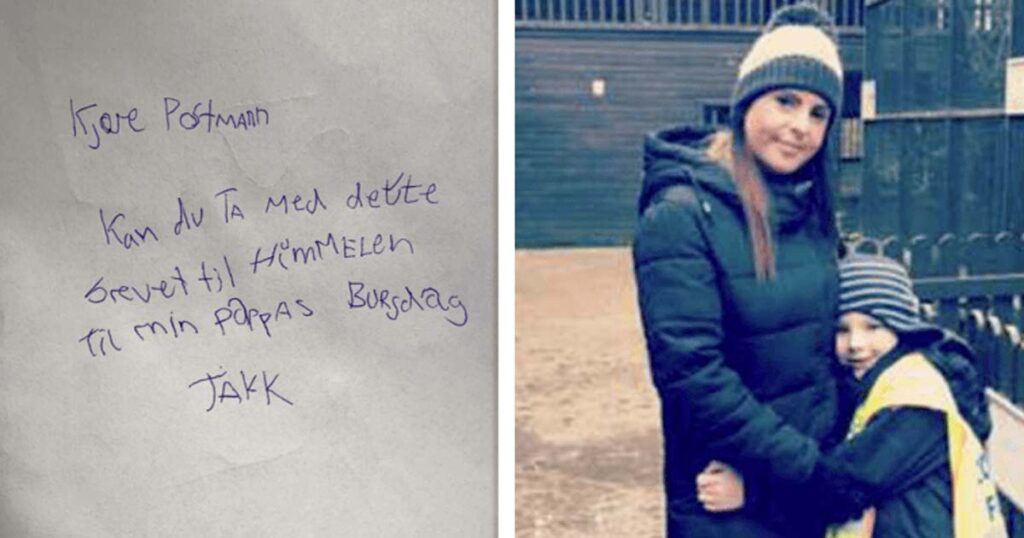 Kjære Postmann
Kan du TA Med dette
brevet til HiMMELen
Til min pappAs BURSdag
TAKK